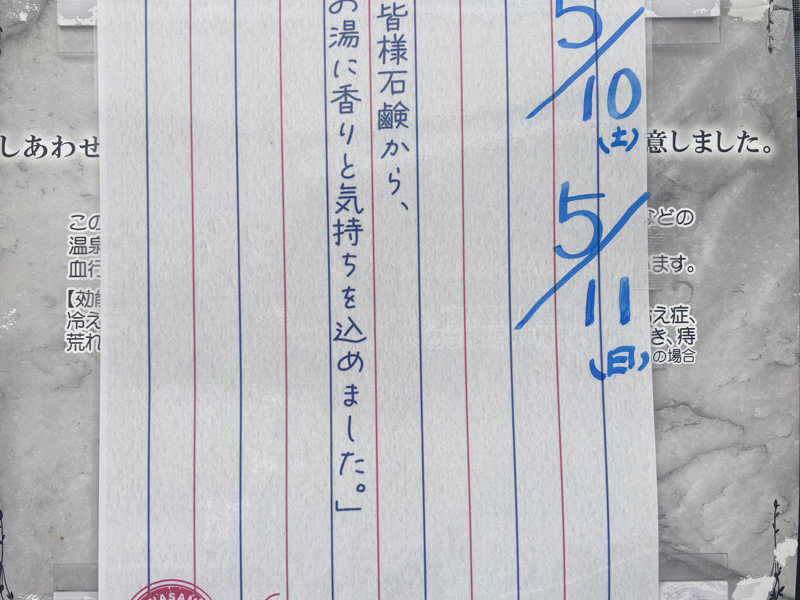 5/10
(土)
5/11
(日)
皆様石鹸から、
お湯に香りと気持ちを込めました。」
しあわせ
意しました。
この
などの
温泉
血行
います。
【効能
冷え
え症、
荒れ
き、痔
の場合